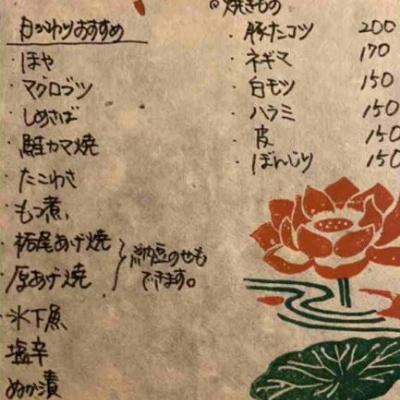 日がわりおすすめ
・ほや
・マグロブツ
・しめさば
・鮭カマ焼
・たこわさ
・もつ煮
・栃尾あげ焼
・厚あげ焼
納豆のせも
できます。
・氷下魚
塩辛
ぬか漬
◎焼きもの
・豚たんコツ 200
・ネギマ 170
・白モツ 150
・ハラミ 150
・皮 150
・ぼんじり 150